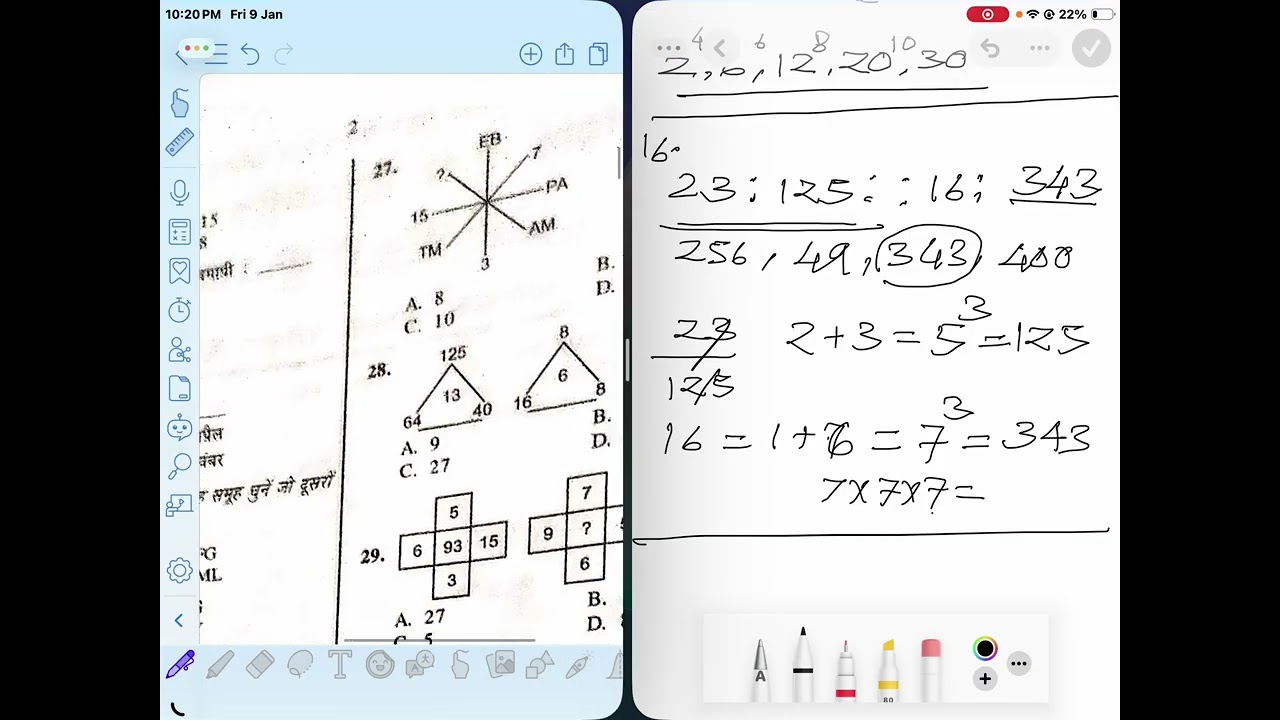 10:20 PM Fri 9 Jan
22%
2
27.
EB
7
?
PA
15
AM
TM
3
B.
D.
A. 8
C. 10
28.
125
13
64
40
8
6
16
8
B.
D.
A. 9
C. 27
29.
5
6 93 15
3
7
9 ?
6
B.
D.
A. 27
C. 5
15
8
समूह चुनें जो दूसरों
FG
ML
4 6 8 10
2, 6, 12, 20, 30
16.
23 : 125 : : 16 : 343
256, 49, 343, 400
23
125
2+3 = 5³ = 125
16 = 1+6 = 7³ = 343
7×7×7 =
A
80